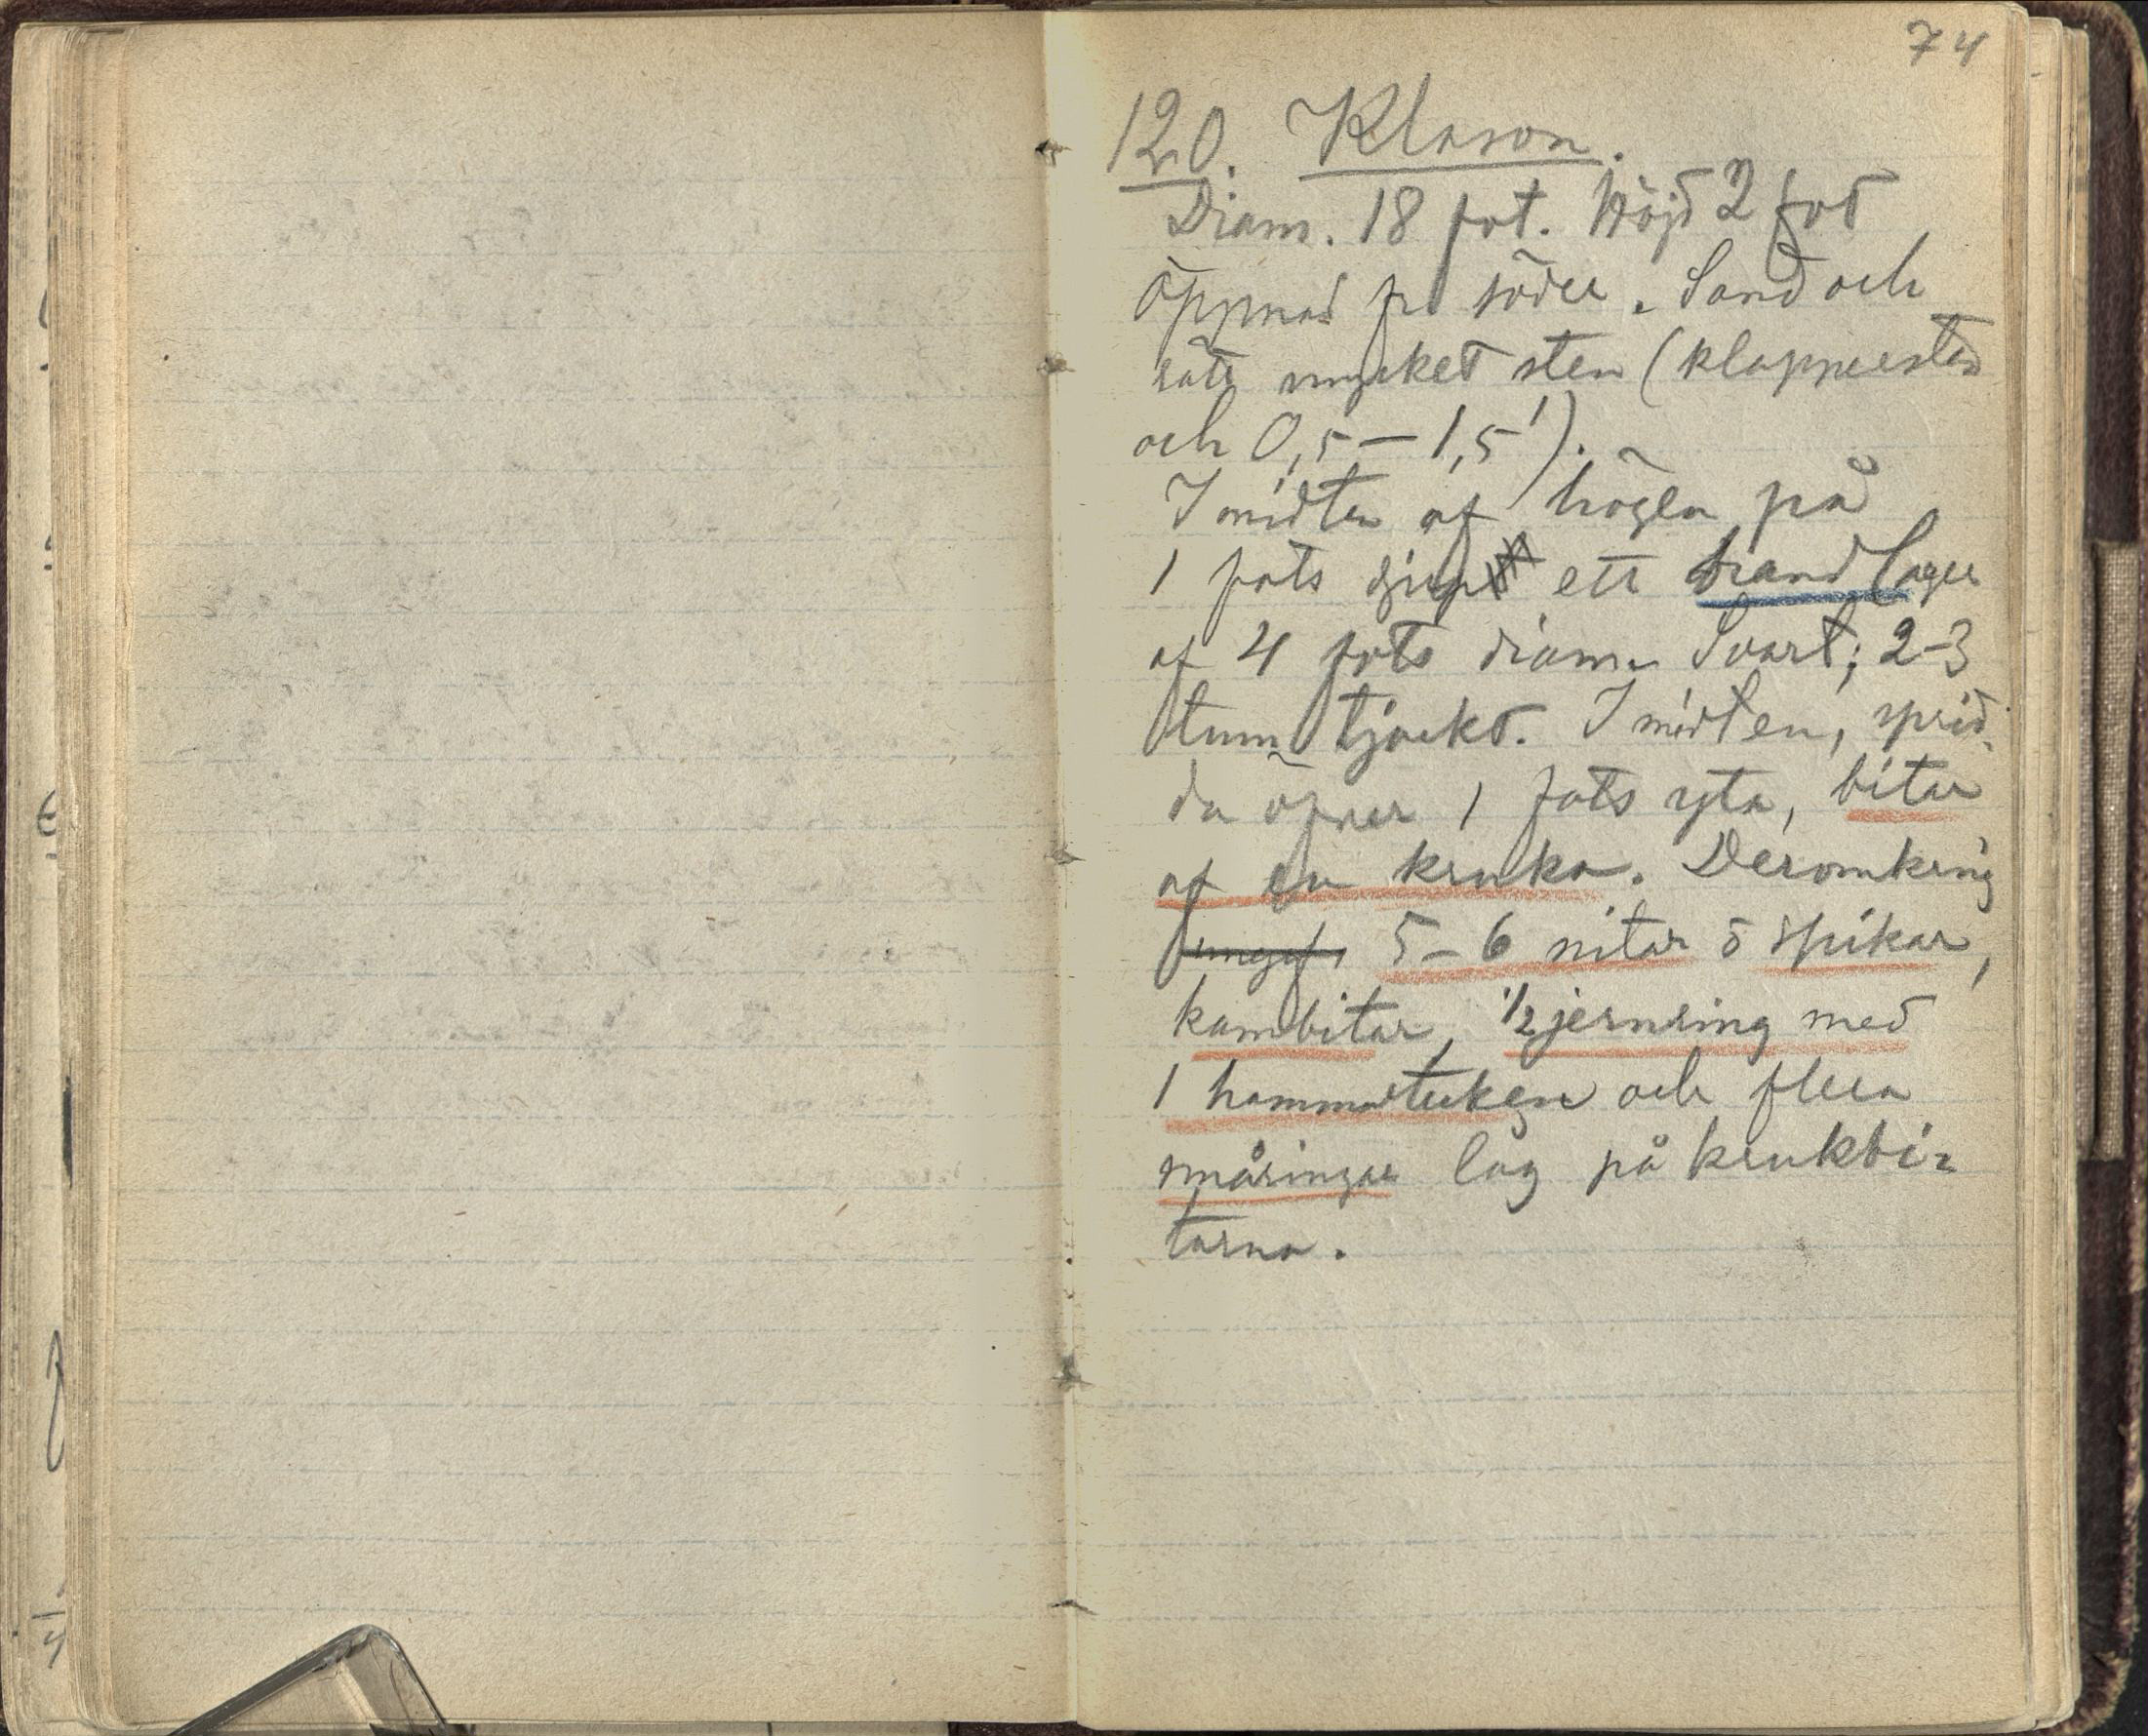 74
120. Klason.
Diam. 18 fot. Höjd 2 fot
öppnad fr söder. Sand och
rätt mycket sten (klappersten
och 0,5 – 1,5').
I midten af högen på
1 fots djup ett brandlager
af 4 fots diam. Svart; 2-3
tum tjockt. I midten, sprid-
da öfver 1 fots yta, bitar
af en kruka. Deromkring
5 – 6 nitar o spikar,
kambitar, 1/2 jernring med
1 hammartecken och flera
småringar låg på krukbi-
tarna.